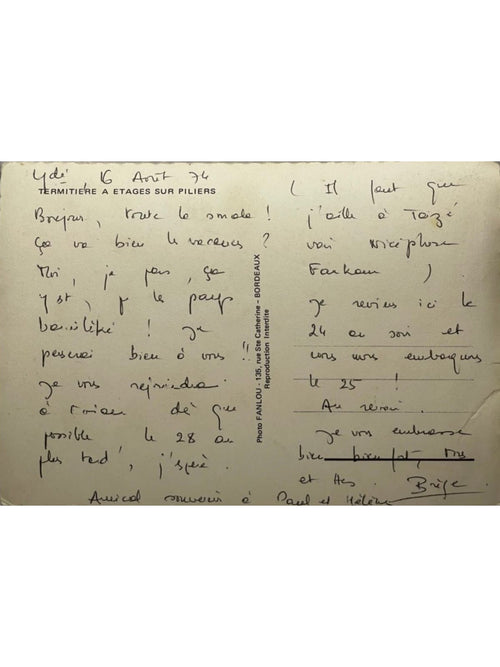 Ydé, 16 Août 74
TERMITIERE A ETAGES SUR PILIERS
Bonjour, toute la smala !
ça va bien le vacances ?
Moi, je pars, ça
y est, p le pays
! Je
penserai bien à vous !!
Je vous rejoindrai
à dè que
possible le 28 au
plus tard, j'espère.
Photo FANLOU - 135, rue Ste Catherine - BORDEAUX
Reproduction Interdite
( Il faut que
j'aille à Taizé
voir Nicéphore
)
Je reviens ici le
24 au soir et
nous embarquons
le 25 !
Au revoir.
Je vous embrasse
bien bien fort, Ms
et Hes. Brige
Amical souvenir à Paul et Hélène